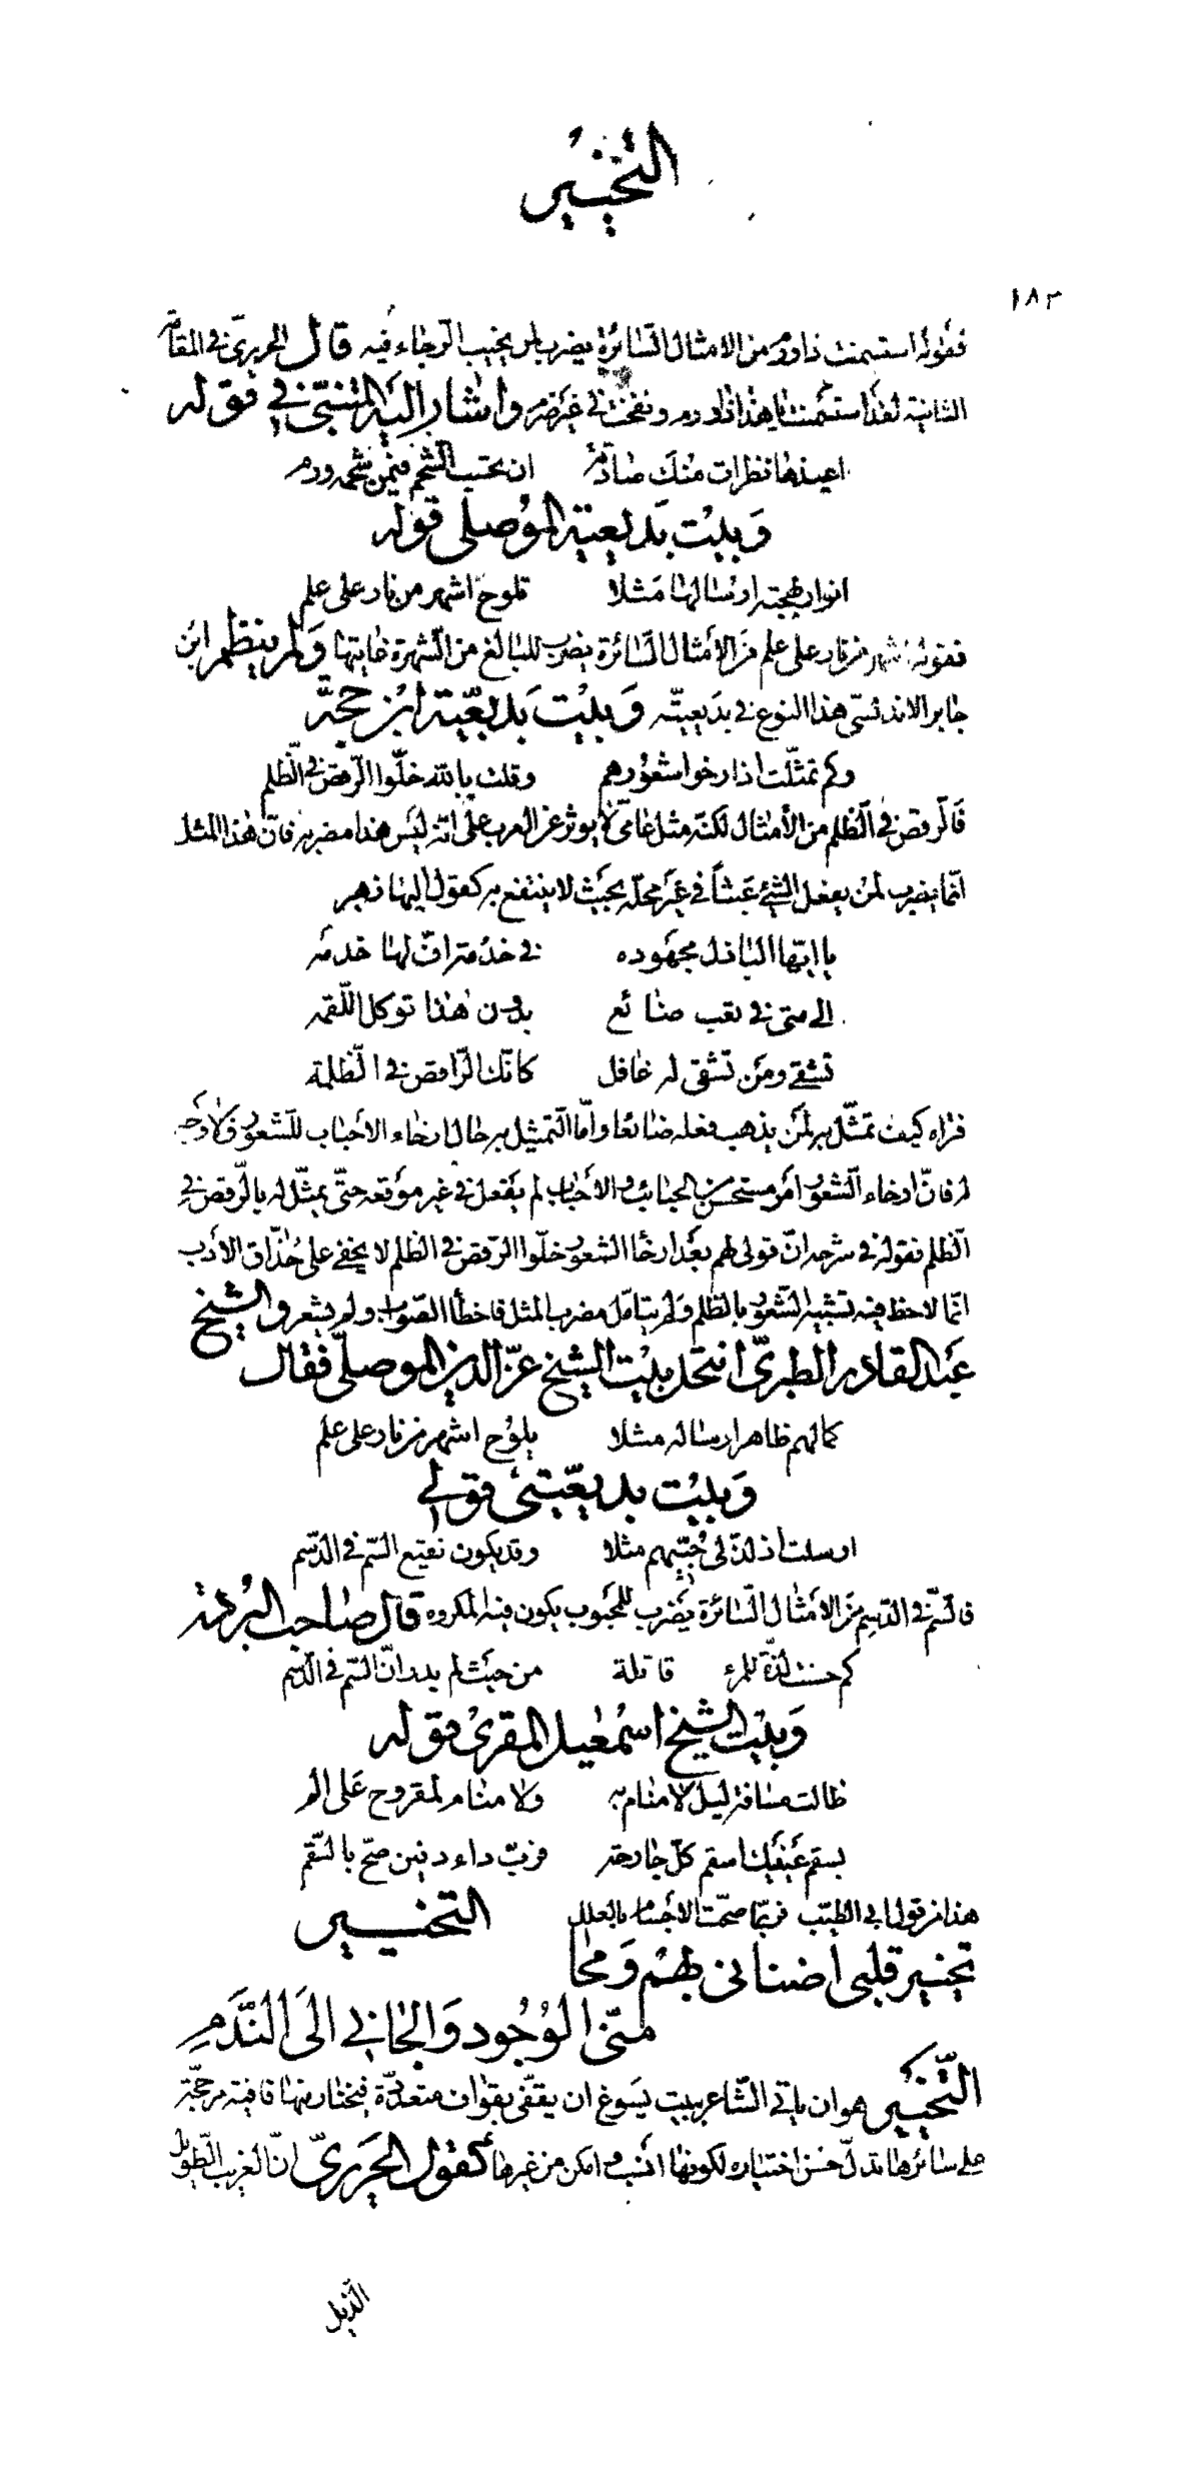 التخيير
١٨٣
فقوله استسمنت ذا ورم من الامثال السّائرة يضرب لمن يخيب الرّجاء فيه قال الحريريّ في المقامة
الثانية لقد استسمنت يا هذا ذا ورم ونفخت في غير ضرم واشار اليه المتنبّي في قوله
اعيذها نظرات منك صادقة ان تحسب الشّحم فيمن شحمه ورم
وبيت بديعية الموصلي قوله
انوار بهجته ارسالها مثلا تلوح اشهر من نار على علم
فقوله اشهر من نار على علم من الأمثال السّائرة يضرب للبالغ من الشّهرة غايتها ولم ينظم ابن
جابر الاندلسي هذا النوع في بديعيتّه وبيت بديعيّة ابن حجة
وكم تمثّلت اذ ارخوا شعورهم وقلت بالله خلّوا الرّقص في الظّلم
فالرقص في الظّلم من الأمثال لكنّه مثل عامّي لا يوثر عن العرب على انّه ليس هذا مضربه فانّ هذا المثل
انّما يضرب لمن يفعل الشيء عبثاً في غير محلّه بحيث لا ينتفع به كقول البها زهير
يا ايّها الباذل مجهوده في خدمة افّ لها خدمه
الى متى في تعب ضائع بدون هذا توكل اللّقمه
تشقى ومن تشقى له غافل كانّك الرّاقص في الظّلمة
فتراه كيف تمثّل به لمن يذهب فعله ضائعا وامّا التّمثيل به حال ارخاء الاحباب للشّعور فلا وجه
له فانّ ارخاء الشّعور امر مستحسن من الحبائب والاحباب لم يفعل في غير موقعه حتّى يمثّل له بالرّقص في
الظّلم فقوله في شرحه انّ قولي لهم بعد ارخا الشعور خلّوا الرّقص في الظلم لا يخفى على حذّاق الأدب
انّما لاحظ فيه تشبيه الشّعور بالظّلم ولم يتامّل مضرب المثل فاخطأ الصّواب ولم يشعر والشيخ
عبد القادر الطبريّ انتحل بيت الشيخ عزّ الدين الموصلّي فقال
كمالهم ظاهر ارساله مثلا يلوح اشهر من نار على علم
وبيت بديعيّتي قولي
ارسلت اذ لذّ لي حبّيهم مثلا وقد يكون نقيع السّم في الدّسم
فالسّم في الدّسم من الأمثال السّائرة يضرب للمحبوب يكون فيه المكروه قال صاحب البردة
كم حسنت لذّة للمرء قاتلة من حيث لم يدر انّ السّم في الدّسم
وبيت الشيخ اسمعيل المقرئ قوله
طالت مسافة ليل لا منام به ولا منام لمقروح على الم
بسقم عينيك اسقم كلّ جارحة فربّ داء دفين صحّ بالسّقم
هذا من قول ابي الطيّب فربّما صحّت الأجسام بالعلل التخيير
تخيير قلبي أضناني بهم ومحا
منّي الوجود والجاني الى النّدم
التّخيير هو ان ياتي الشّاعر ببيت يسوغ ان يقفّى بقواف متعدّدة فيختار منها قافية مرجحّة
على سائرها تدلّ حسن اختياره لكونها انسب وامكن من غيرها كقول الحريريّ انّ الغريب الطّويل
الذيل